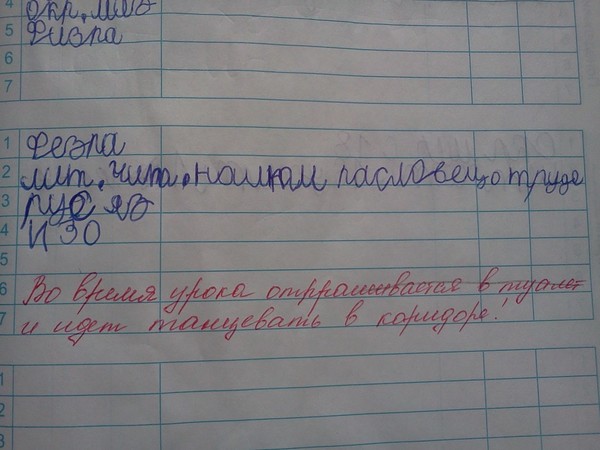 4 окр. мир
5 Физра
6
7
1 Физра
2 лит. чита. наилкам пасловец о труде
3 рус яз
4 ИЗО
5
6 Во время урока отпрашивается в туалет
7 и идет танцевать в коридоре!
1
2
3